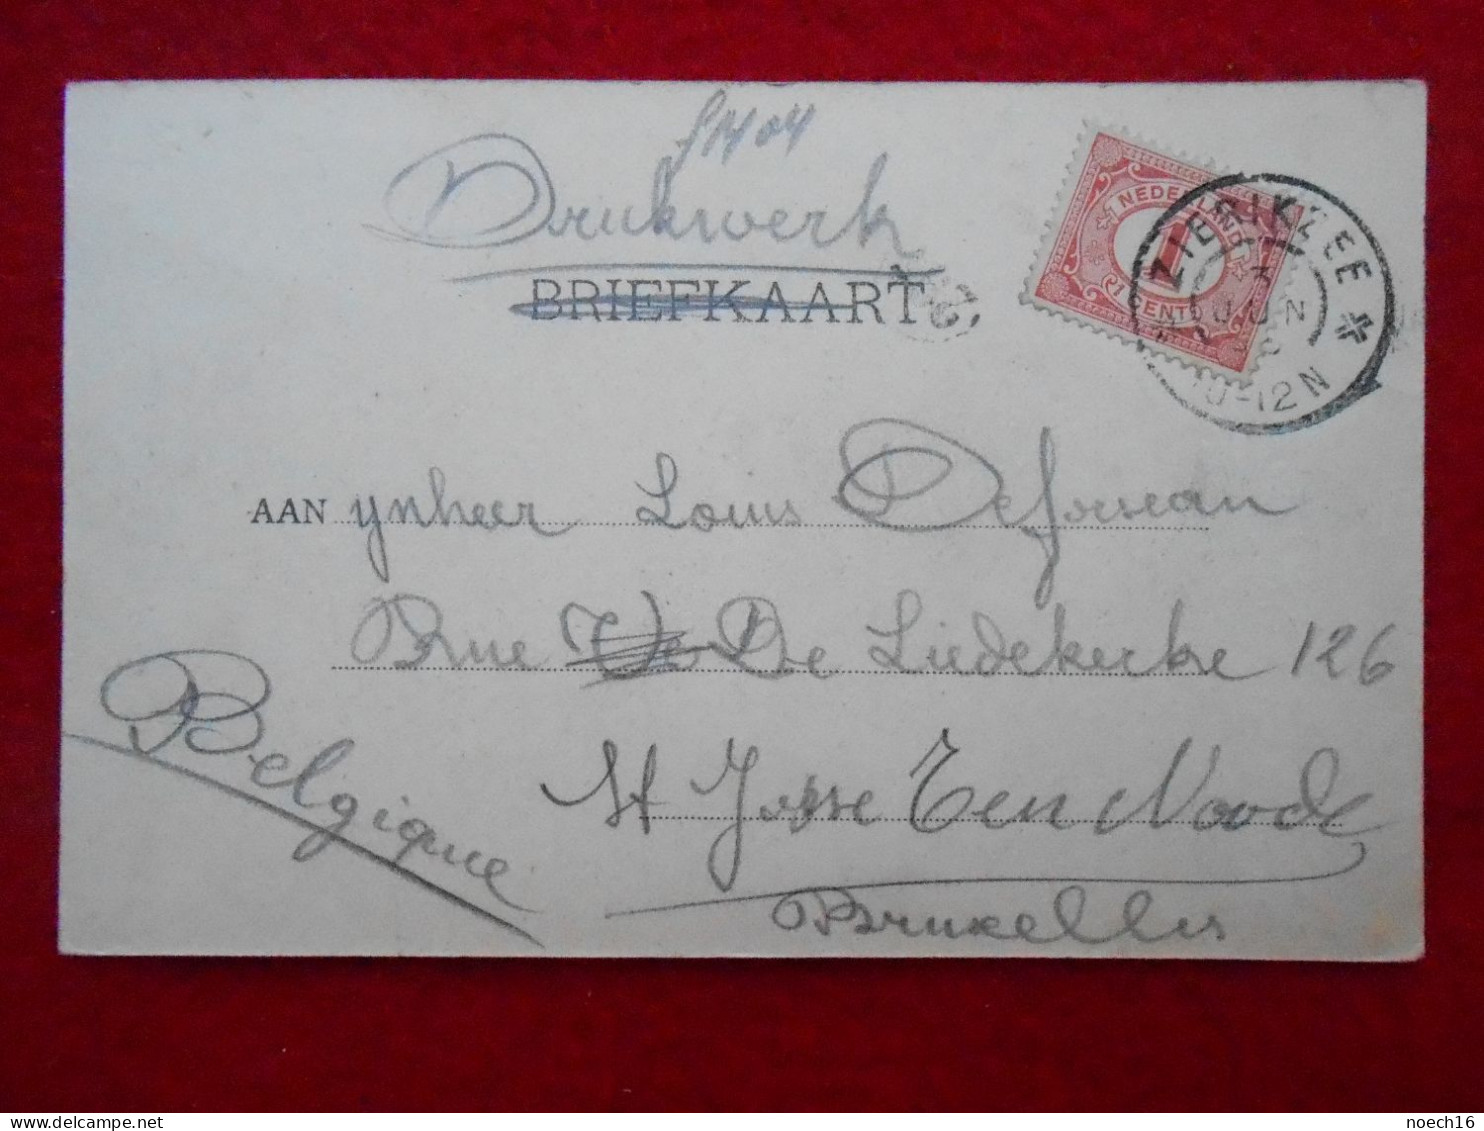 Drukwerk
BRIEFKAART
NEDERLAND
1
1 CENT
ZIERIKZEE
3
JUN
10-12N
AAN ynheer Louis
Rue De Liedekerke 126
St Josse Ten Noode
Bruxelles
Belgique
noech16